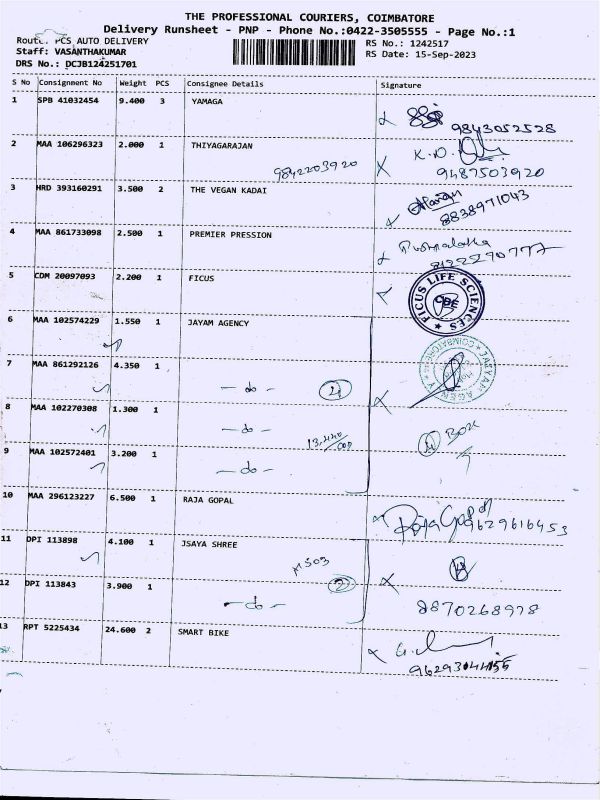 THE PROFESSIONAL COURIERS, COIMBATORE
Delivery Runsheet - PNP - Phone No.:0422-3505555 - Page No.:1
Route: PCS AUTO DELIVERY
RS No.: 1242517
Staff: VASANTHAKUMAR
RS Date: 15-Sep-2023
DRS No.: DCJB124251701
S No Consignment No Weight PCS Consignee Details Signature
1 SPB 41032454 9.400 3 YAMAGA
9843052528
2 MAA 106296323 2.000 1 THIYAGARAJAN
9842203920
9487503920
3 HRD 393160291 3.500 2 THE VEGAN KADAI
8838971043
4 MAA 861733098 2.500 1 PREMIER PRESSION
Pushpalatha
5 CDM 20097093 2.200 1 FICUS
FICUS LIFE SCIENCES
CBE
6 MAA 102574229 1.550 1 JAYAM AGENCY
JAYAM AGENCY
COIMBATORE
7 MAA 861292126 4.350 1
- do - 4
8 MAA 102270308 1.300 1
- do -
4 Box
9 MAA 102572401 3.200 1
- do -
10 MAA 296123227 6.500 1 RAJA GOPAL
Raja Gopal
9629616453
11 DPI 113898 4.100 1 JSAYA SHREE
12 DPI 113843 3.900 1
2
- do -
8870268978
13 RPT 5225434 24.600 2 SMART BIKE